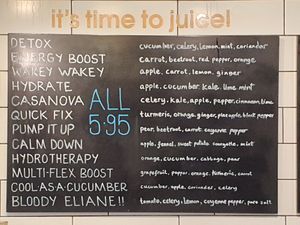 it's time to juice!
DETOX cucumber, celery, lemon, mint, coriander
ENERGY BOOST carrot, beetroot, red pepper, orange
WAKEY WAKEY apple, carrot, lemon, ginger
HYDRATE apple, cucumber, kale, lime, mint
CASANOVA celery, kale, apple, pepper, cinnamon, lime
QUICK FIX turmeric, orange, ginger, pineapple, black pepper
PUMP IT UP pear, beetroot, carrot, cayenne pepper
CALM DOWN apple, fennel, sweet potato, courgette, mint
HYDROTHERAPY orange, cucumber, cabbage, pear
MULTI-FLEX BOOST grapefruit, pepper, orange, turmeric, carrot
COOL AS A CUCUMBER cucumber, apple, coriander, celery
BLOODY ELIANE!! tomato, celery, lemon, cayenne pepper, salt
ALL
5.95